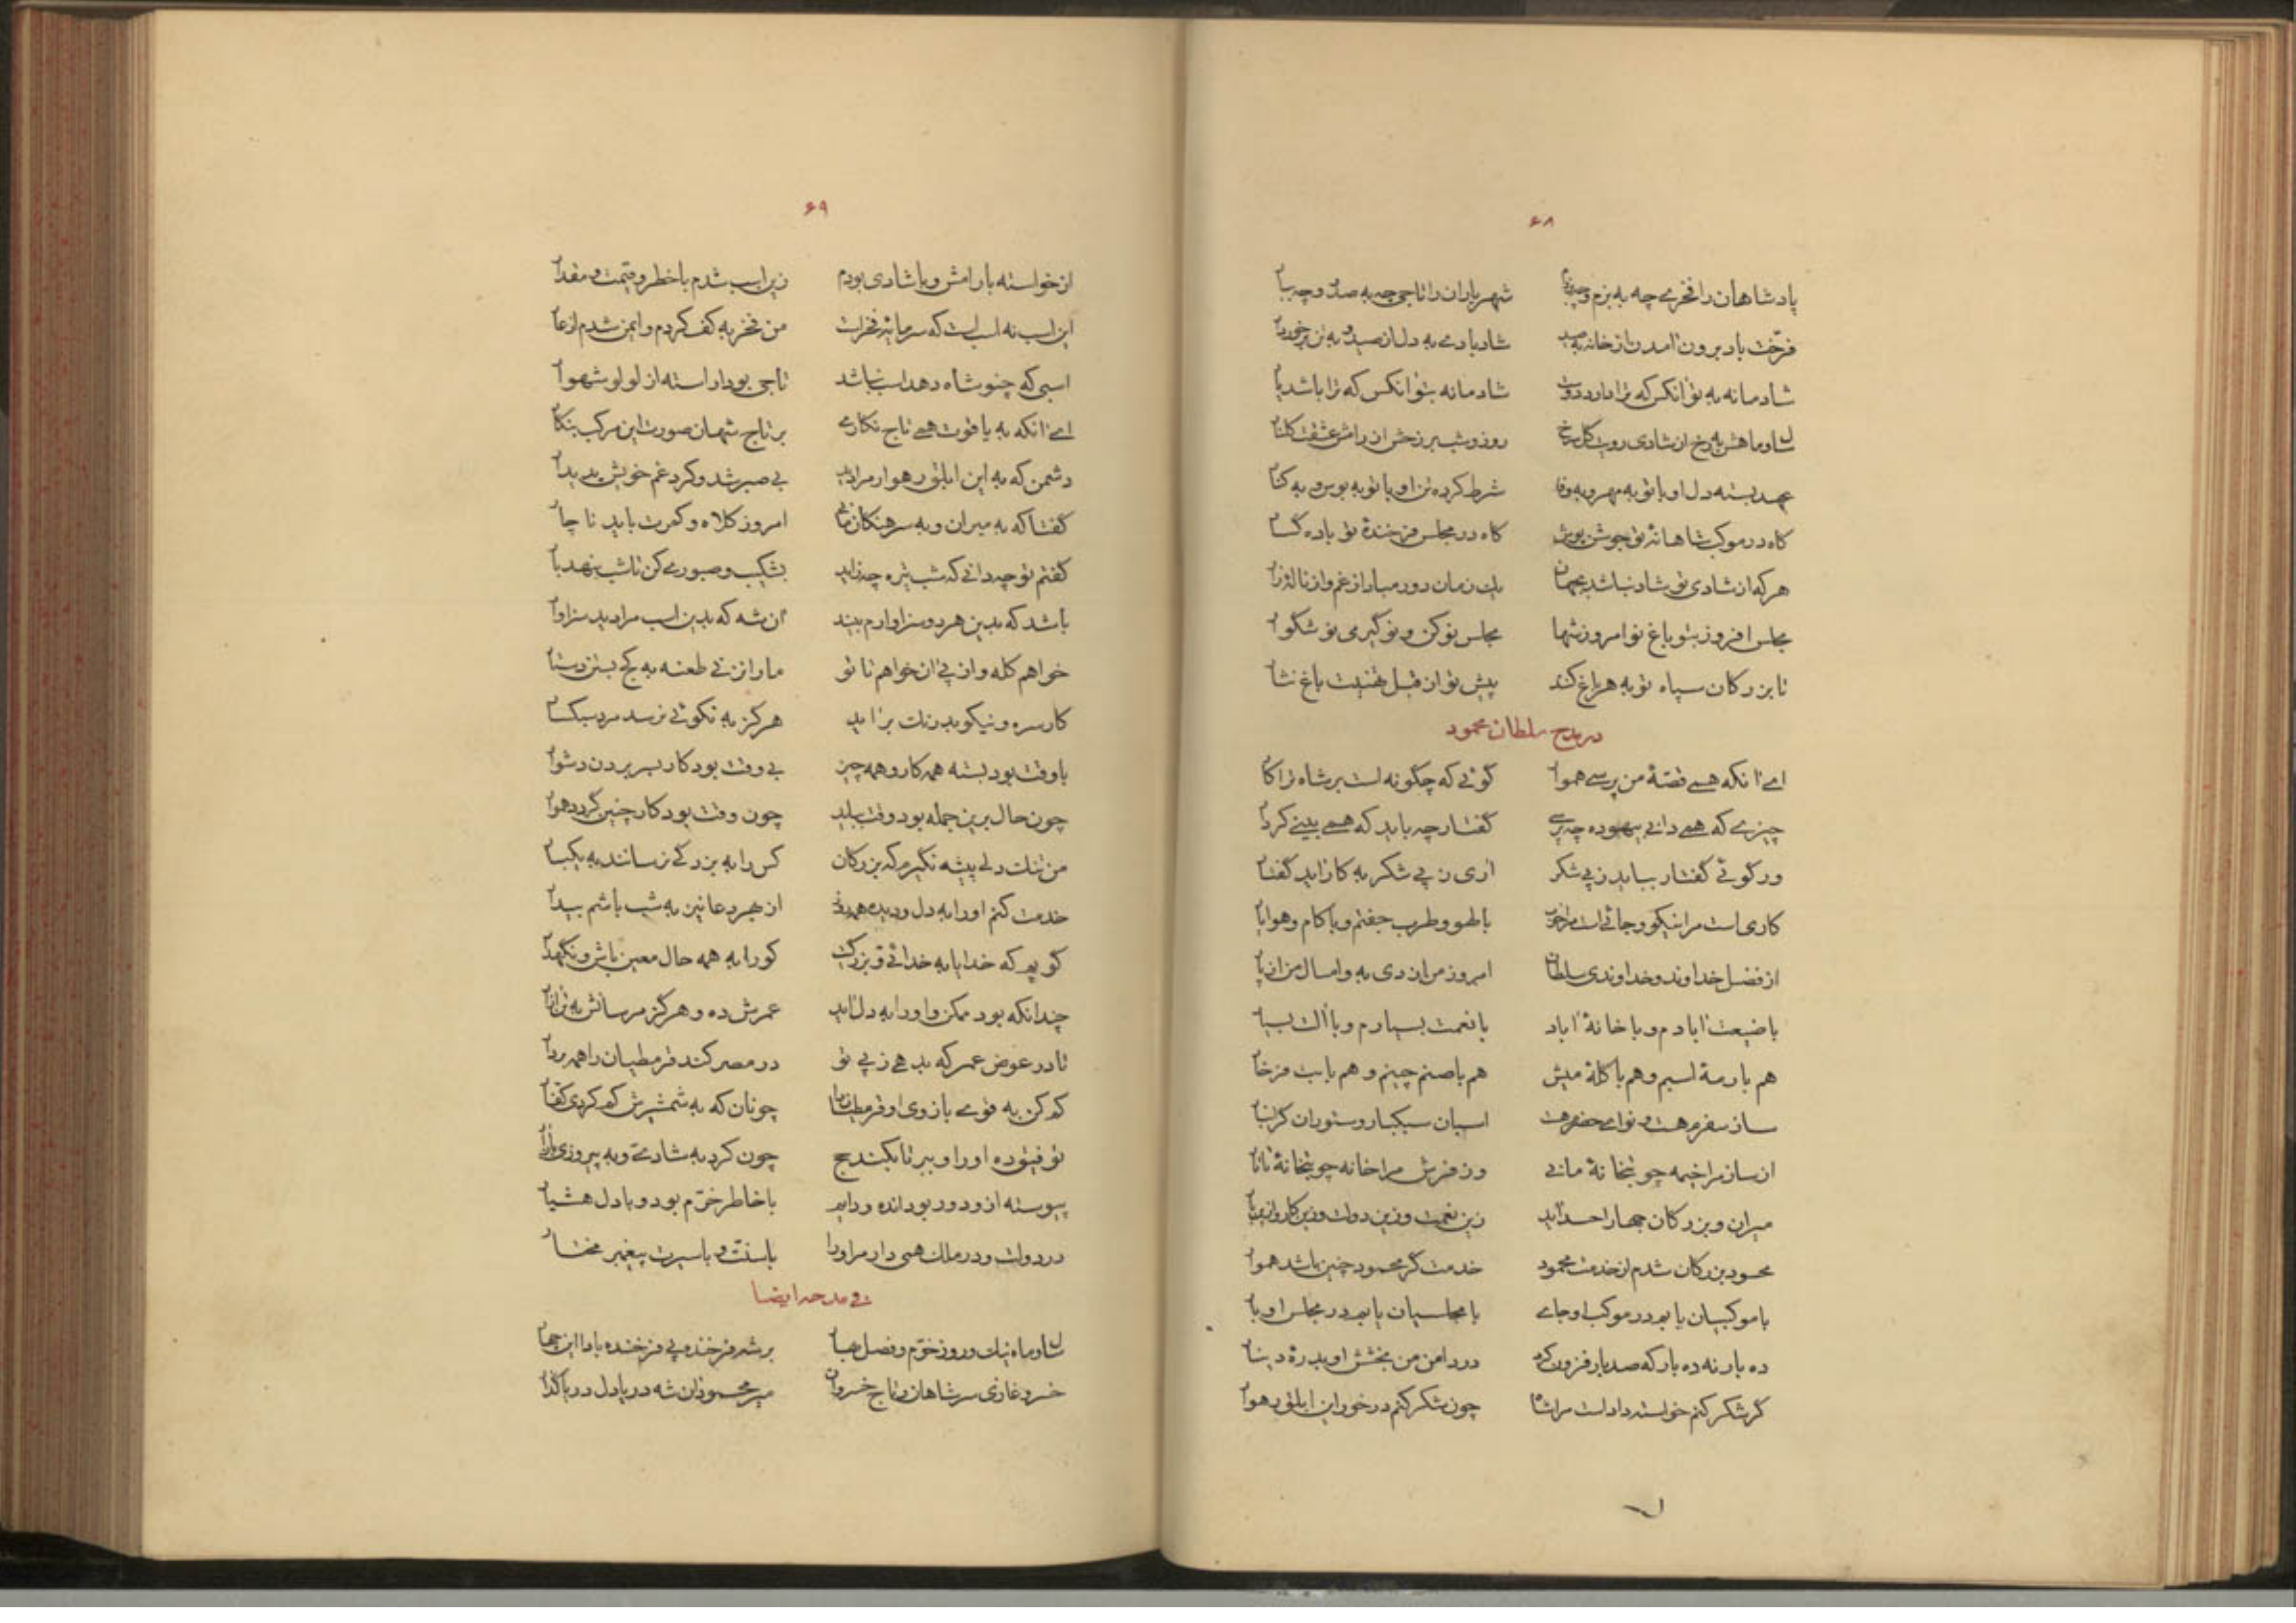 ۶۸
پادشاهان را فخری چه به بزم و چه شهریاران را تاجی چه به صدر و چه ببار
فرخت باد برون آمدن از خانه به صید شاد بادی به دل از صید و به تن برخوردار
شادمانه به تو آنکس که ترا دارد دوست شادمانه بتو آنکس که ترا باشد یار
رخ از شادی روی گل سرخ روز و شب بر رخش از رامش عشقت گلنار
عهد بسته دل او با تو به مهر و به وفا شرط کرده تن او با تو به بوس و به کنار
گاه در موکب شاهانهٔ تو جوشن پوش گاه در مجلس فرخندهٔ تو باده گسار
هر که از شادی تو شاد نباشد بجهان یک زمان دور مباد از غم و از نالهٔ زار
مجلس افروز بتو باغ تو امروز شها مجلس نو کن و نو گیر می نوشگوار
تا بزرگان سپاه تو به هر باغ کند پیش تو از قبل تهنیت باغ نثار
در مدح سلطان محمود
ای آنکه همی قصهٔ من پرسی هموار گوئی که چگونه است بر شاه ترا کار
چیزی که همی دانی بیهوده چه پرسی گفتار چه باید که همی بینی کردار
ور گوئی گفتار بباید ز پی شکر آری ز پی شکر به کار آید گفتار
کاری است مرا نیکو و جائی است مرا خوب با لهو و طرب جفتم و با کام و هوا یار
از فضل خداوند و خداوندی سلطان امروز من از دی به و امسال من از پار
با ضیعت آبادم و با خانهٔ آباد با نعمت بسیارم و با آلت بسیار
هم با رمهٔ اسبم و هم با گلهٔ میش هم با صنم چینم و هم با بت فرخار
ساز سفرم هست و نوای حضرم هست اسبان سبکبار و ستوران گرانبار
از ساز مرا خیمه چو بتخانهٔ مانی وز فرش مرا خانه چو بتخانهٔ تاتار
میران و بزرگان جهان را حسد آید زین نعمت و زین دولت و زین کار و ازین بار
محسود بزرگان شدم از خدمت محمود خدمتگر محمود چنین باشد هموار
با موکبیان یابم در موکب او جای با مجلسیان یابم در مجلس او بار
ده بار نه ده بار که صد بار فزون کرد در دامن من بخشش او بدرهٔ دینار
گر شکر کنم خواسته دادست مرا شاه چون شکر کنم در خور این ابلق رهوار
۶۹
از خواسته با رامش و با شادی بودم زین اسب شدم با خطر و قیمت و مقدار
این اسب نه اسب است که سرمایهٔ فخر است من فخر به کف کردم و ایمن شدم از عار
اسبی که چنو شاه دهد اسب نباشد تاجی بود آراسته از لولو شهوار
ای آنکه به یاقوت همی تاج نگاری بر تاج شهان صورت این مرکب بنگار
دشمن که به این ابلق رهوار مرا دید بی صبر شد و کرد غم خویش پدیدار
گفتا که به میران و به سرهنگان مانی امروز کلاه و کمرت باید ناچار
گفتم تو چه دانی که شب تیره چه زاید بشکیب و صبوری کن تا شب بنهد بار
باشد که بدین هر دو سزاوارم بیند آن شه که بدین اسب مرا دید سزاوار
خواهم کله و از پی آن خواهم تا تو ما را نزنی طعنه به کج بستن دستار
کار سره و نیکو بدرنگ برآید هرگز به نکوئی نرسد مرد سبکسار
با وقت بود بسته همه کار و همه چیز بی وقت بود کار بسر بردن دشوار
چون حال برین جمله بود وقت بباید چون وقت بود کار چنین گردد هموار
من تنگ دلی پیشه نگیرم که بزرگان کس را به بزرگی نرسانند به یکبار
خدمت کنم او را به دل و دیده همه روز از بهر دعا نیز به شب باشم بیدار
گویم که خدایا به خدائی و بزرگیت کو را به همه حال معین باش و نگهدار
چندانکه بود ممکن و او را به دل آید عمرش ده و هرگز مرسانش به تن آزار
تا در عوض عمر که بدهی ز پی تو در مصر کند قرمطیان را همه بر دار
کم کن به قوی بازوی او قرمطیان را چونان که به شمشیرش کم کردی کفار
توفیق ده او را و ببر تا بکند حج چون کرد به شادی و به پیروزی باز آر
پیوسته ازو دور بود انده و دایم با خاطر خرم بود و با دل هشیار
در دولت و در ملک همی دار مر او را با سنت و با سیرت پیغمبر مختار
فی مدحه ایضا
سال و ماه نیک و روز خرم و فصل بهار بر شه فرخنده پی فرخنده بادا این چهار
خسرو غازی سر شاهان و تاج خسروان میر محمود آن شه دریا دل دریا گذار